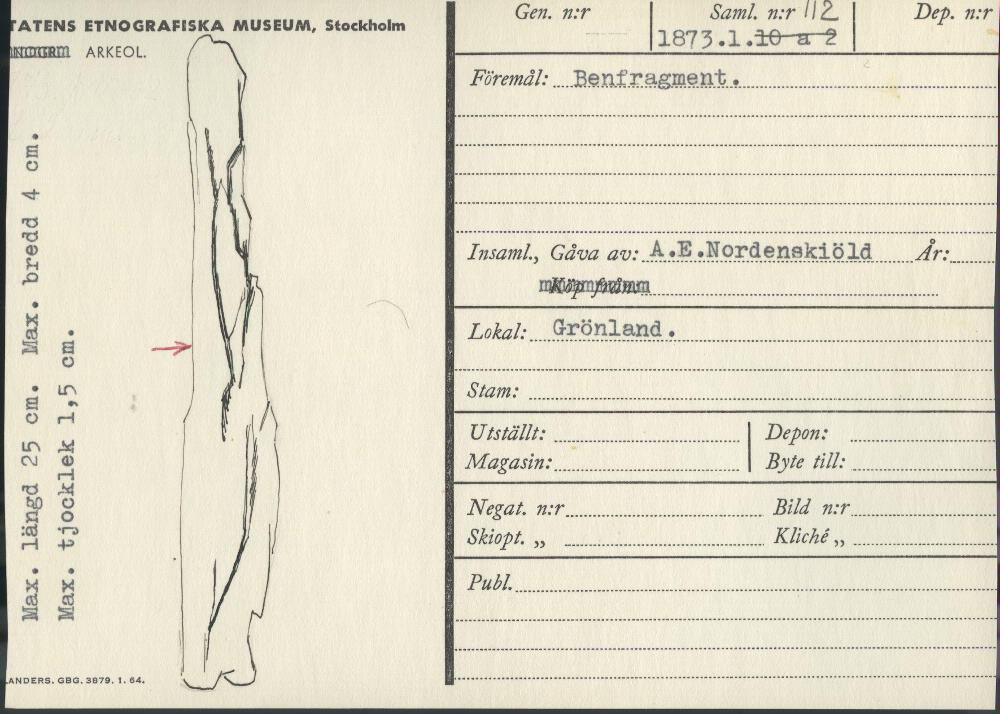 TATENS ETNOGRAFISKA MUSEUM, Stockholm
ARKEOL.
Max. längd 25 cm. Max. bredd 4 cm.
Max. tjocklek 1,5 cm.
ANDERS. GBG. 3879. 1. 64.
Gen. n:r
Saml. n:r 112
1873.1.10 a 2
Dep. n:r
Föremål: Benfragment.
Insaml., Gåva av: A.E.Nordenskiöld År:
Köp från:
Lokal: Grönland.
Stam:
Utställt: Depon:
Magasin: Byte till:
Negat. n:r Bild n:r
Skiopt. „ Kliché „
Publ.